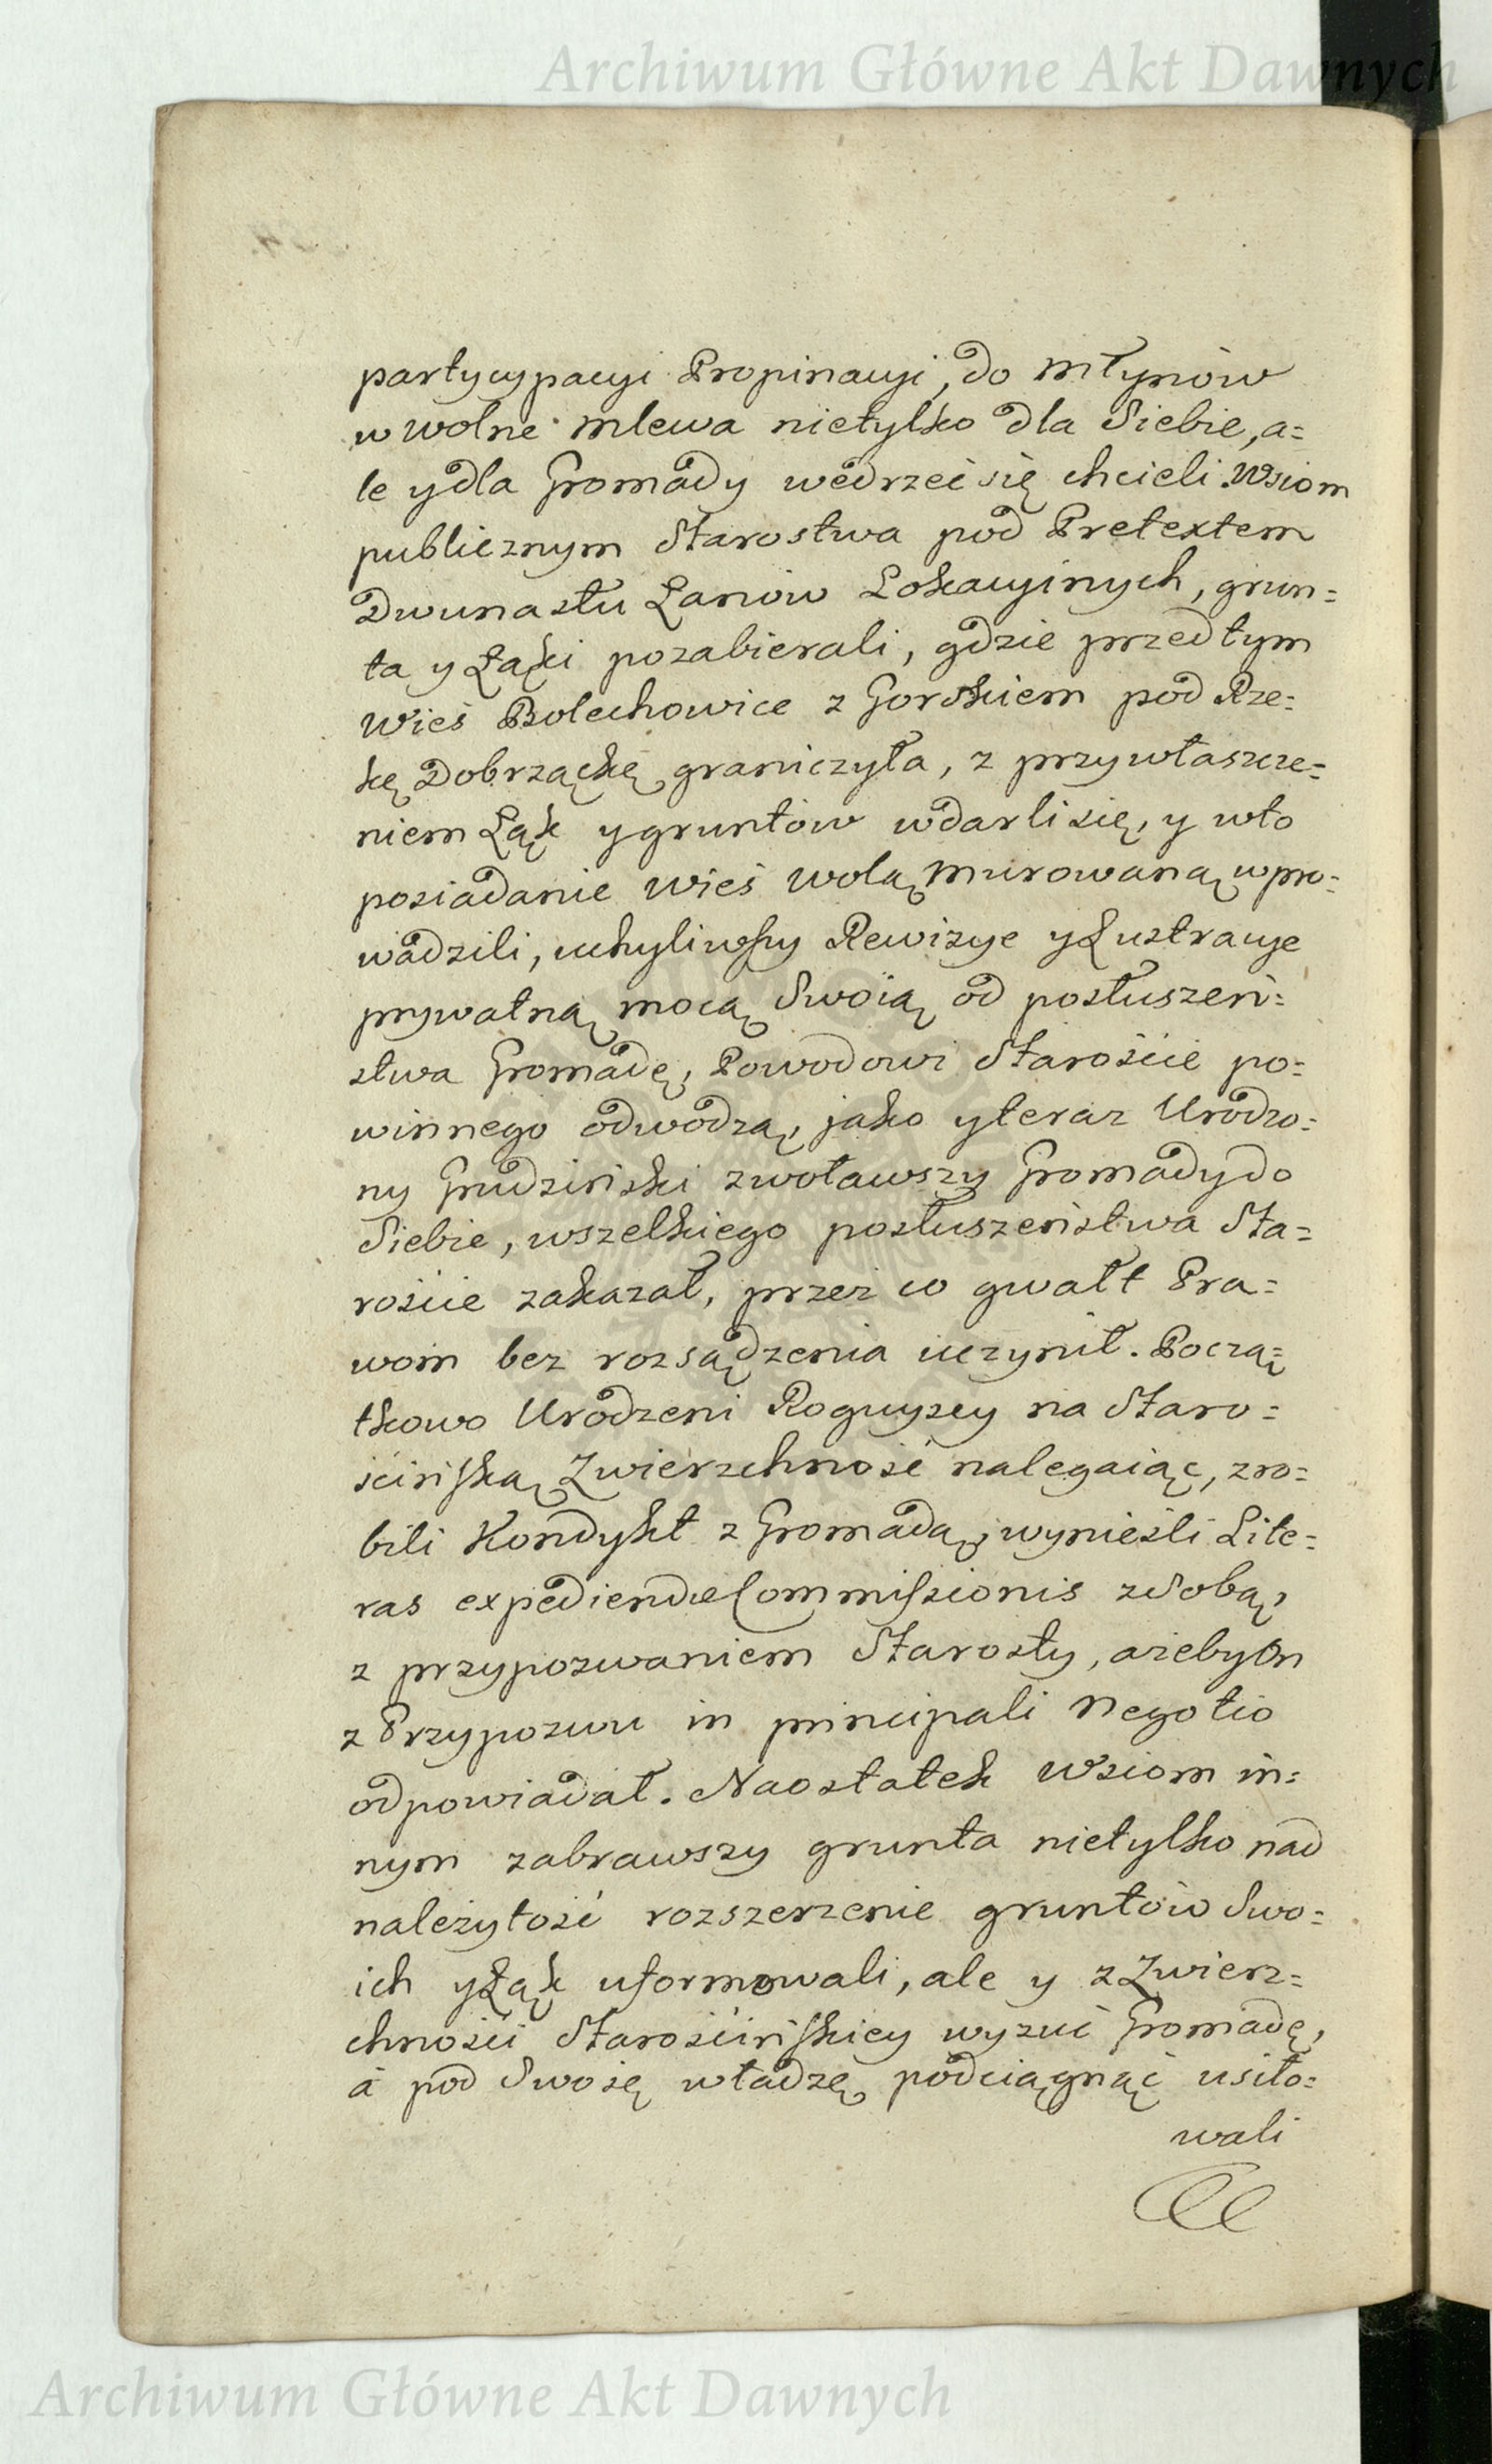 Archiwum Główne Akt Dawnych
partycypacyi Propinacyi, do Młynów
w wolne mlewa nietylko dla Siebie, a=
le y dla Gromady wedrzeć się chcieli. Wsiom
publicznym Starostwa pod Pretextem
Dwunastu Łanów Lokacyinych, grun=
ta y Łąki pozabierali, gdzie przedtym
Wieś Bolechowice z Gorskiem pod Rze=
kę Dobrząckę graniczyła, z przywłaszcze=
niem Łąk y gruntów wdarli się, y w to
posiadanie Wieś Wolą Murowaną wpro=
wadzili, uchyliwszy Rewizye y Lustracye
prywatną mocą Swoią od posłuszeń=
stwa Gromadę, Powodowi Starościе po=
winnego odwodzą, jako y teraz Urodzo=
ny Grudziński zwoławszy Gromady do
Siebie, wszelkiego posłuszeństwa Sta=
rościе zakazał, przez co gwałt Pra=
wom bez rozsądzenia uczynił. Począ=
tkowo Urodzeni Roguyscy na Staro=
ścińską Zwierzchność nalegaiąc, zro=
bili Kondykt z Gromadą, wynieśli Lite=
ras expediendæ Commissionis z Sobą,
z przypozwaniem Starosty, ażeby On
z Przypozwu in principali Negotio
odpowiadał. Naostatek Wsiom in=
nym zabrawszy grunta nietylko nad
należytość rozszerzenie gruntów Swo=
ich y Łąk uformowali, ale y z Zwierz=
chności Starościńskiey wyzuć Gromadę,
a pod Swoię władzę podciągnąć usiło=
wali
Archiwum Główne Akt Dawnych